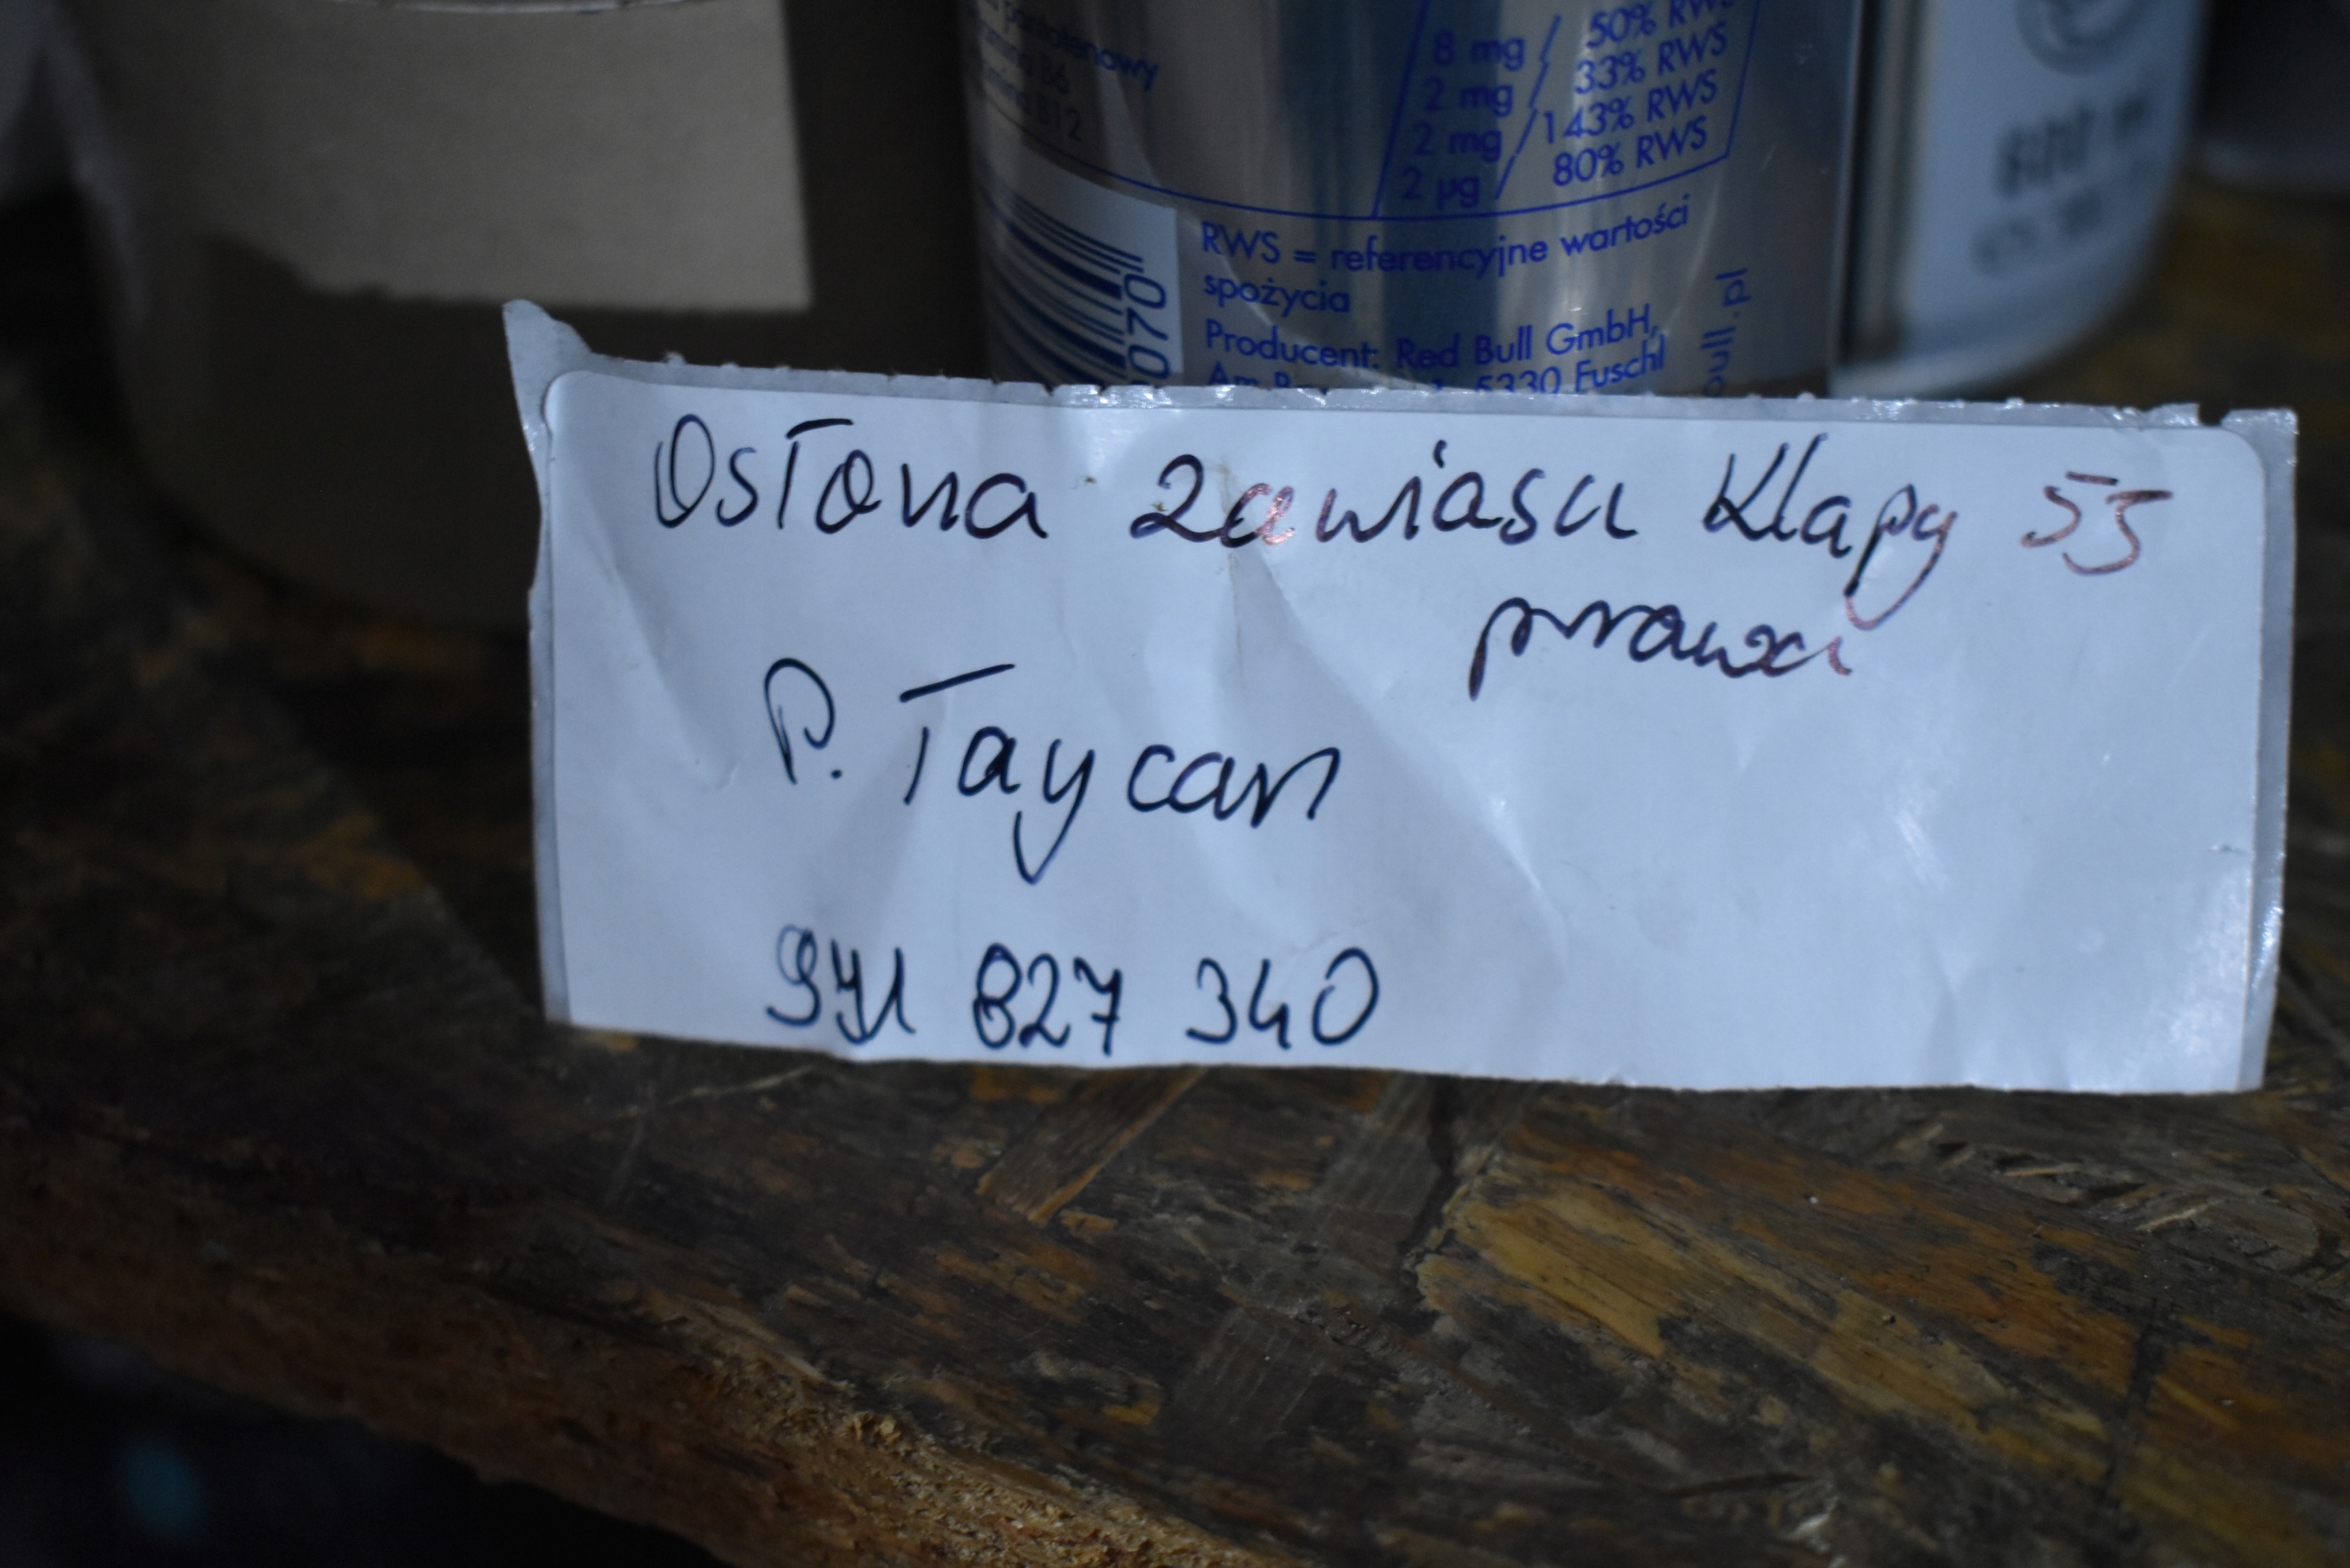 pantotenowy
B6
B12
8 mg / 50% RWS
2 mg / 33% RWS
2 mg / 143% RWS
2 µg / 80% RWS
RWS = referencyjne wartości
spożycia
Producent: Red Bull GmbH,
5330 Fuschl
070
Osłona zawiasu Klapy 55
prawa
P. Taycan
9Y1 827 340